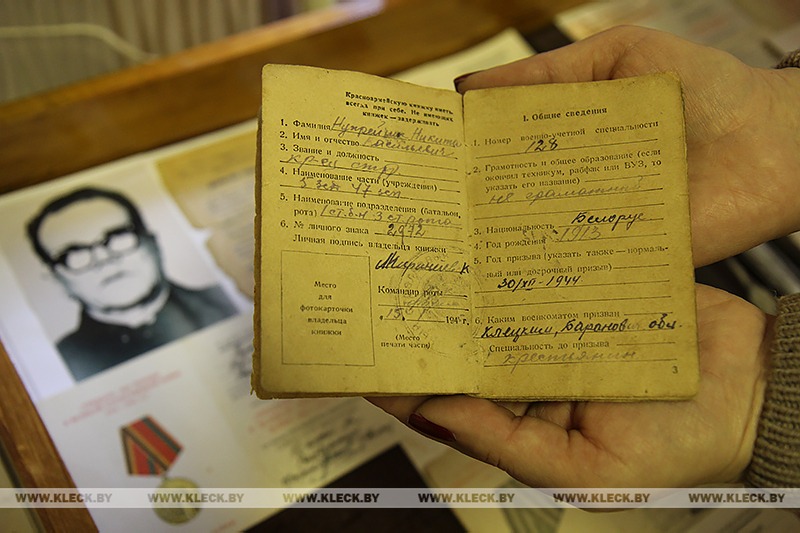 Красноармейскую книжку иметь
всегда при себе. Не имеющих
книжек — задерживать
1. Фамилия Нупрейчик Никита
2. Имя и отчество Васильевич
3. Звание и должность
кр-ец стр.
4. Наименование части (учреждения)
5. Наименование подразделения (батальон,
рота) 3 ст. рота
6. № личного знака 2972
Личная подпись владельца книжки
Место
для
фотокарточки
владельца
книжки
Командир роты
194 г.
(Место
печати части)
I. Общие сведения
1. Номер военно-учетной специальности
128
2. Грамотность и общее образование (если
окончил техникум, рабфак или ВУЗ, то
указать его название)
не грамотный
3. Национальность Белорус
4. Год рождения 1913
5. Год призыва (указать также — нормаль-
ный или досрочный призыв)
30/XII-1944
6. Каким военкоматом призван
Клецким, Баранович обл.
Специальность до призыва
крестьянин
3
WWW.KLECK.BY WWW.KLECK.BY WWW.KLECK.BY WWW.KLECK.BY WWW.KLECK.BY WWW.KLECK.BY